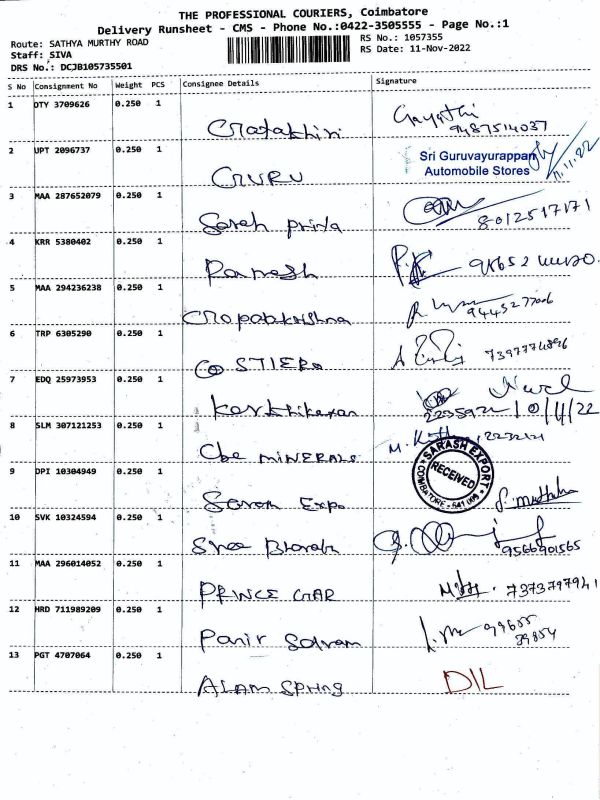 THE PROFESSIONAL COURIERS, Coimbatore
Delivery Runsheet - CMS - Phone No.:0422-3505555 - Page No.:1
Route: SATHYA MURTHY ROAD
RS No.: 1057355
Staff: SIVA
RS Date: 11-Nov-2022
DRS No.: DCJB105735501
S No Consignment No Weight PCS Consignee Details Signature
1 DTY 3709626 0.250 1
Gayathi
9487514037
2 UPT 2096737 0.250 1
GURU
Sri Guruvayurappan
Automobile Stores
11.11.22
3 MAA 287652079 0.250 1
Sarah priya
8012517171
4 KRR 5380402 0.250 1
Ramesh
5 MAA 294236238 0.250 1
Gropalakrishna
6 TRP 6305290 0.250 1
7397774896
7 EDQ 25973953 0.250 1
Karthikeyan
8 SLM 307121253 0.250 1
Cbe MINERALS
9 DPI 10304949 0.250 1
Saran Expo
SARASH EXPORT
RECEIVED
COIMBATORE - 641 009
10 SVK 10324594 0.250 1
Sree Bharath
9566901565
11 MAA 296014052 0.250 1
PRINCE GAR
7373797941
12 HRD 711989209 0.250 1
99655
39854
13 PGT 4707064 0.250 1
ALAM SPRING
DIL